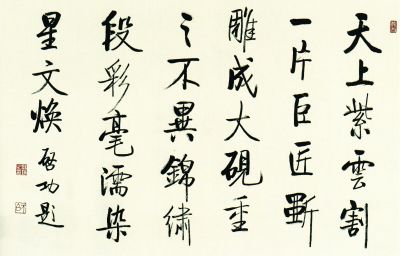 天上紫雲割
一片巨匠斲
雕成大硯重
之不異錦繡
段彩毫濡染
星文煥
啟功題